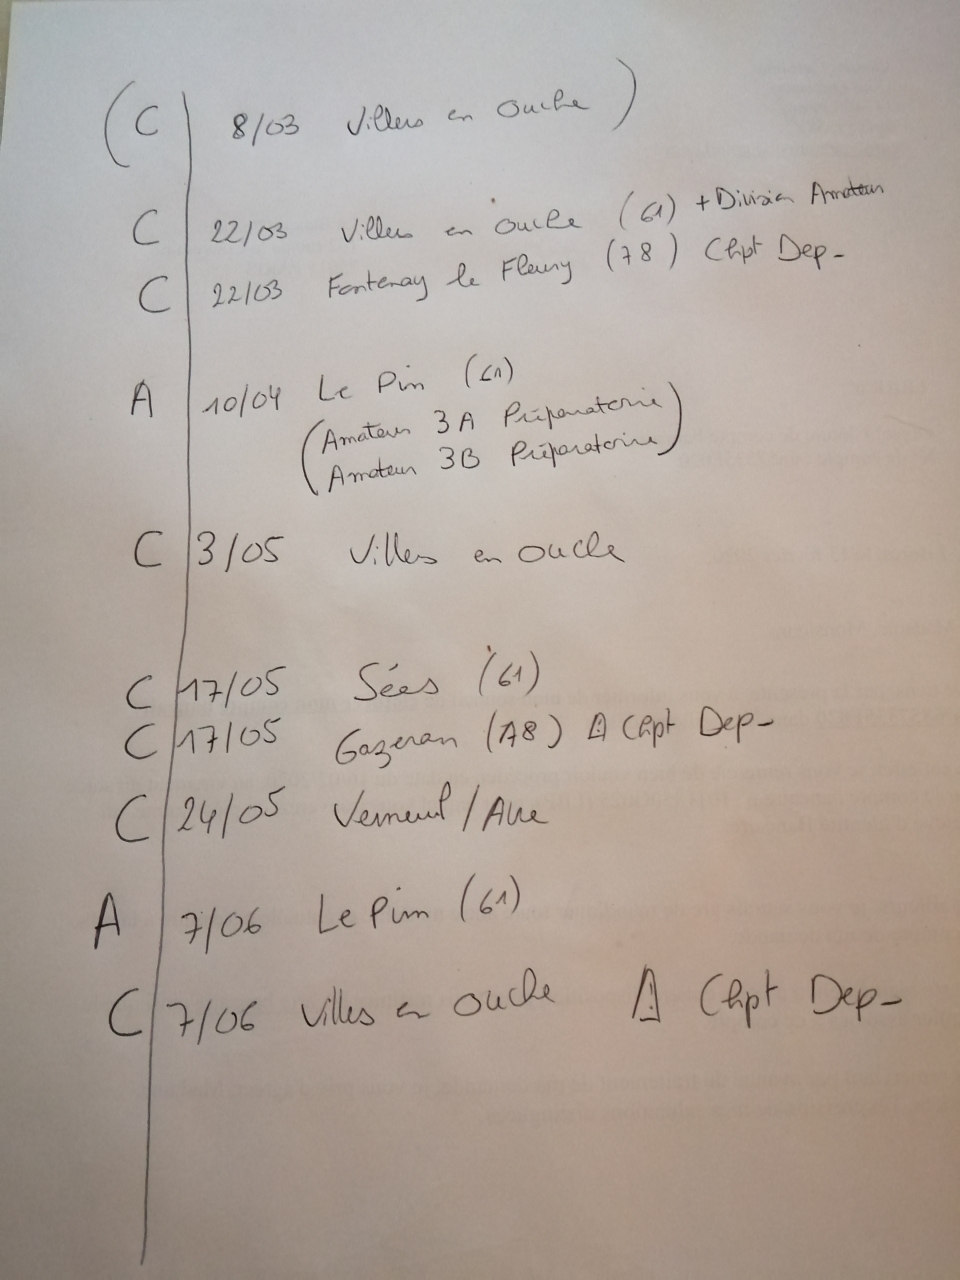 (C 8/03 Villers en Ouche)
C 22/03 Villers en ouche (61) + Division Amateur
C 22/03 Fontenay le Fleury (78) Chpt Dep-
A 10/04 Le Pin (61)
(Amateur 3A Préparatoire
Amateur 3B Préparatoire)
C 3/05 Villes en ouche
C 17/05 Sées (61)
C 17/05 Gazeran (78) ⚠ Chpt Dep-
C 24/05 Verneuil/Avre
A 7/06 Le Pin (61)
C 7/06 Villes en ouche ⚠ Chpt Dep-